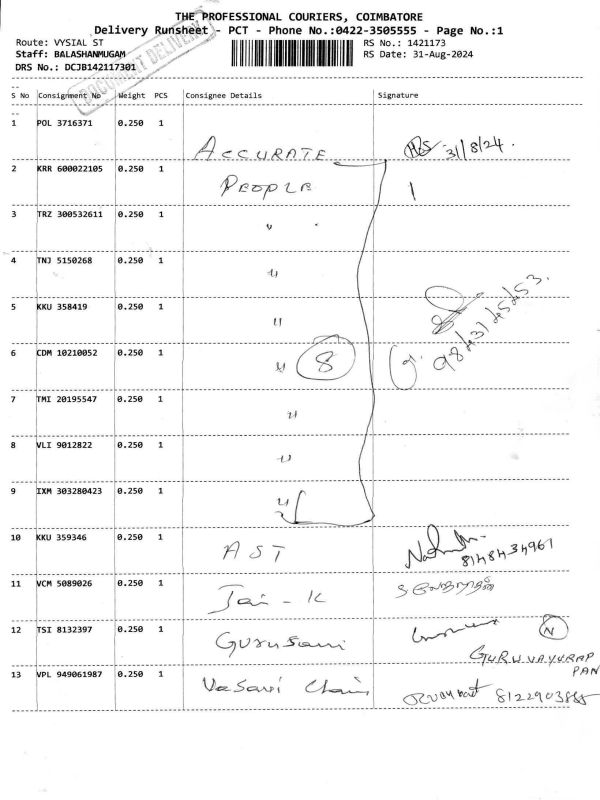 THE PROFESSIONAL COURIERS, COIMBATORE
Delivery Runsheet - PCT - Phone No.:0422-3505555 - Page No.:1
Route: VYSIAL ST
RS No.: 1421173
Staff: BALASHANMUGAM
RS Date: 31-Aug-2024
DRS No.: DCJB142117301
DOCUMENT DELIVERY
S No Consignment No Weight PCS Consignee Details Signature
1 POL 3716371 0.250 1 ACCURATE 31/8/24.
2 KRR 600022105 0.250 1 PEOPLE
3 TRZ 300532611 0.250 1 "
4 TNJ 5150268 0.250 1 "
5 KKU 358419 0.250 1 "
6 CDM 10210052 0.250 1 " 8
7 TMI 20195547 0.250 1 "
8 VLI 9012822 0.250 1 "
9 IXM 303280423 0.250 1 "
10 KKU 359346 0.250 1 AST 8148434961
11 VCM 5089026 0.250 1 Jai - K
12 TSI 8132397 0.250 1 Gurusami N
GURUVAYURAP
PAN
13 VPL 949061987 0.250 1 Vasavi Chain